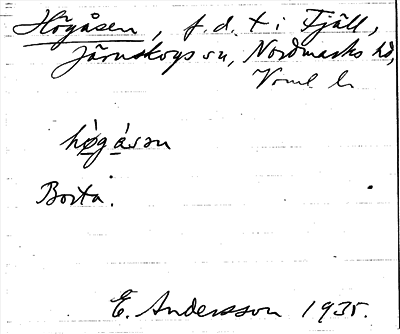 Högåsen, f.d. t i Fjäll,
Järnskogs sn, Nordmarks hd,
Vrml l.
hø̀gásən
Borta.
E. Andersson 1935.